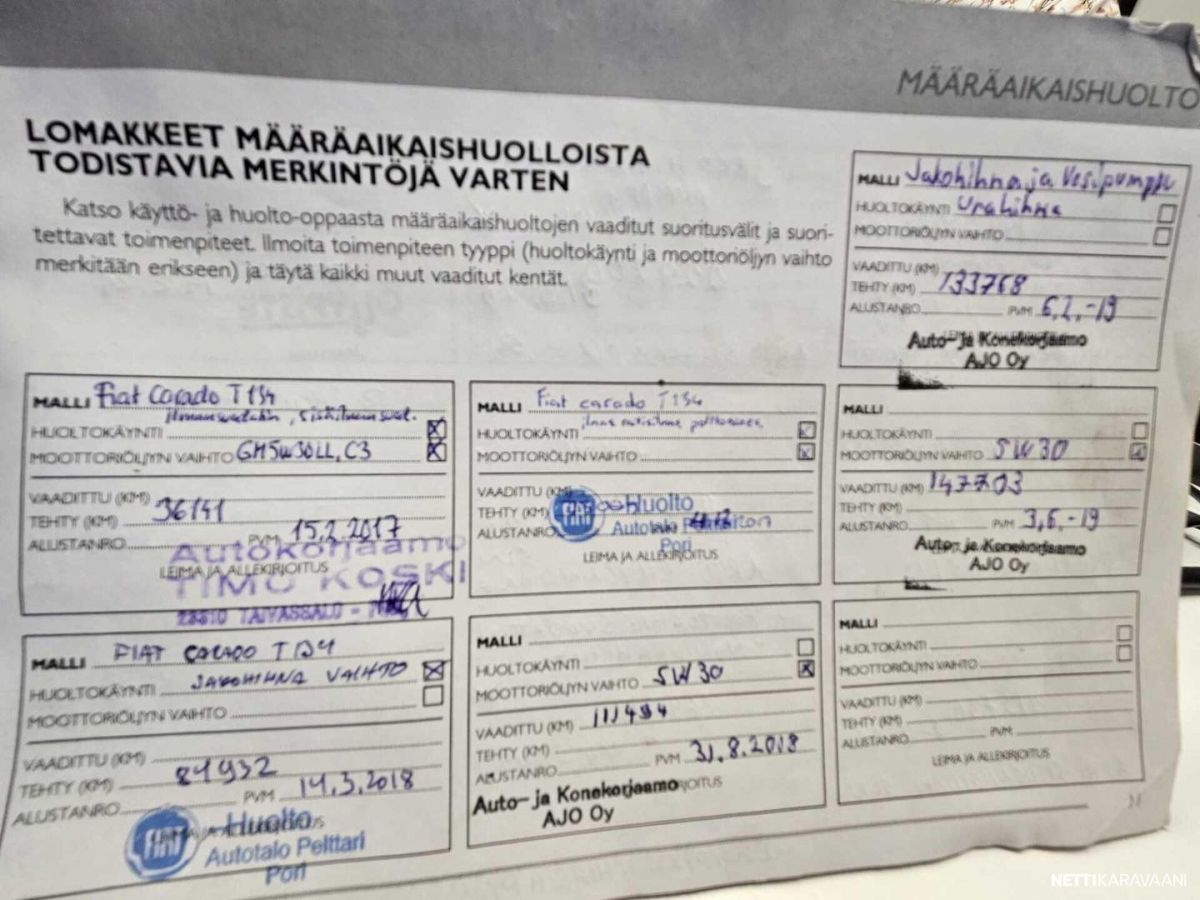 MÄÄRÄAIKAISHUOLTO
LOMAKKEET MÄÄRÄAIKAISHUOLLOISTA
TODISTAVIA MERKINTÖJÄ VARTEN
Katso käyttö- ja huolto-oppaasta määräaikaishuoltojen vaaditut suoritusvälit ja suori-
tettavat toimenpiteet. Ilmoita toimenpiteen tyyppi (huoltokäynti ja moottoriöljyn vaihto
merkitään erikseen) ja täytä kaikki muut vaaditut kentät.
MALLI Jakohihna ja Vesipumppu
HUOLTOKÄYNTI Urahihna
MOOTTORIÖLJYN VAIHTO
VAADITTU (KM)
TEHTY (KM) 133768
ALUSTANRO PVM 6.2.-19
Auto- ja Konekorjaamo
AJO Oy
MALLI Fiat Carado T134
HUOLTOKÄYNTI
MOOTTORIÖLJYN VAIHTO C3
VAADITTU (KM)
TEHTY (KM) 36141
ALUSTANRO PVM 15.2.2017
Autokorjaamo
LEIMA JA ALLEKIRJOITUS
TIMO KOSKI
23310 TAIVASSALO
MALLI Fiat carado T134
HUOLTOKÄYNTI
MOOTTORIÖLJYN VAIHTO
VAADITTU (KM)
TEHTY (KM)
FIAT Huolto
ALUSTANRO Autotalo
Pori
LEIMA JA ALLEKIRJOITUS
MALLI
HUOLTOKÄYNTI
MOOTTORIÖLJYN VAIHTO 5W30
VAADITTU (KM) 147703
TEHTY (KM)
ALUSTANRO PVM 3.6.-19
Auto- ja Konekorjaamo
AJO Oy
MALLI FIAT CARADO T134
HUOLTOKÄYNTI JAKOHIHNA VAIHTO
MOOTTORIÖLJYN VAIHTO
VAADITTU (KM)
TEHTY (KM) 84932
ALUSTANRO PVM 14.3.2018
FIAT Huolto
Autotalo Pelttari
Pori
MALLI
HUOLTOKÄYNTI
MOOTTORIÖLJYN VAIHTO 5W30
VAADITTU (KM) 111494
TEHTY (KM)
ALUSTANRO PVM 31.8.2018
Auto- ja Konekorjaamo
AJO Oy
MALLI
HUOLTOKÄYNTI
MOOTTORIÖLJYN VAIHTO
VAADITTU (KM)
TEHTY (KM)
ALUSTANRO PVM
LEIMA JA ALLEKIRJOITUS
NETTIKARAVAANI